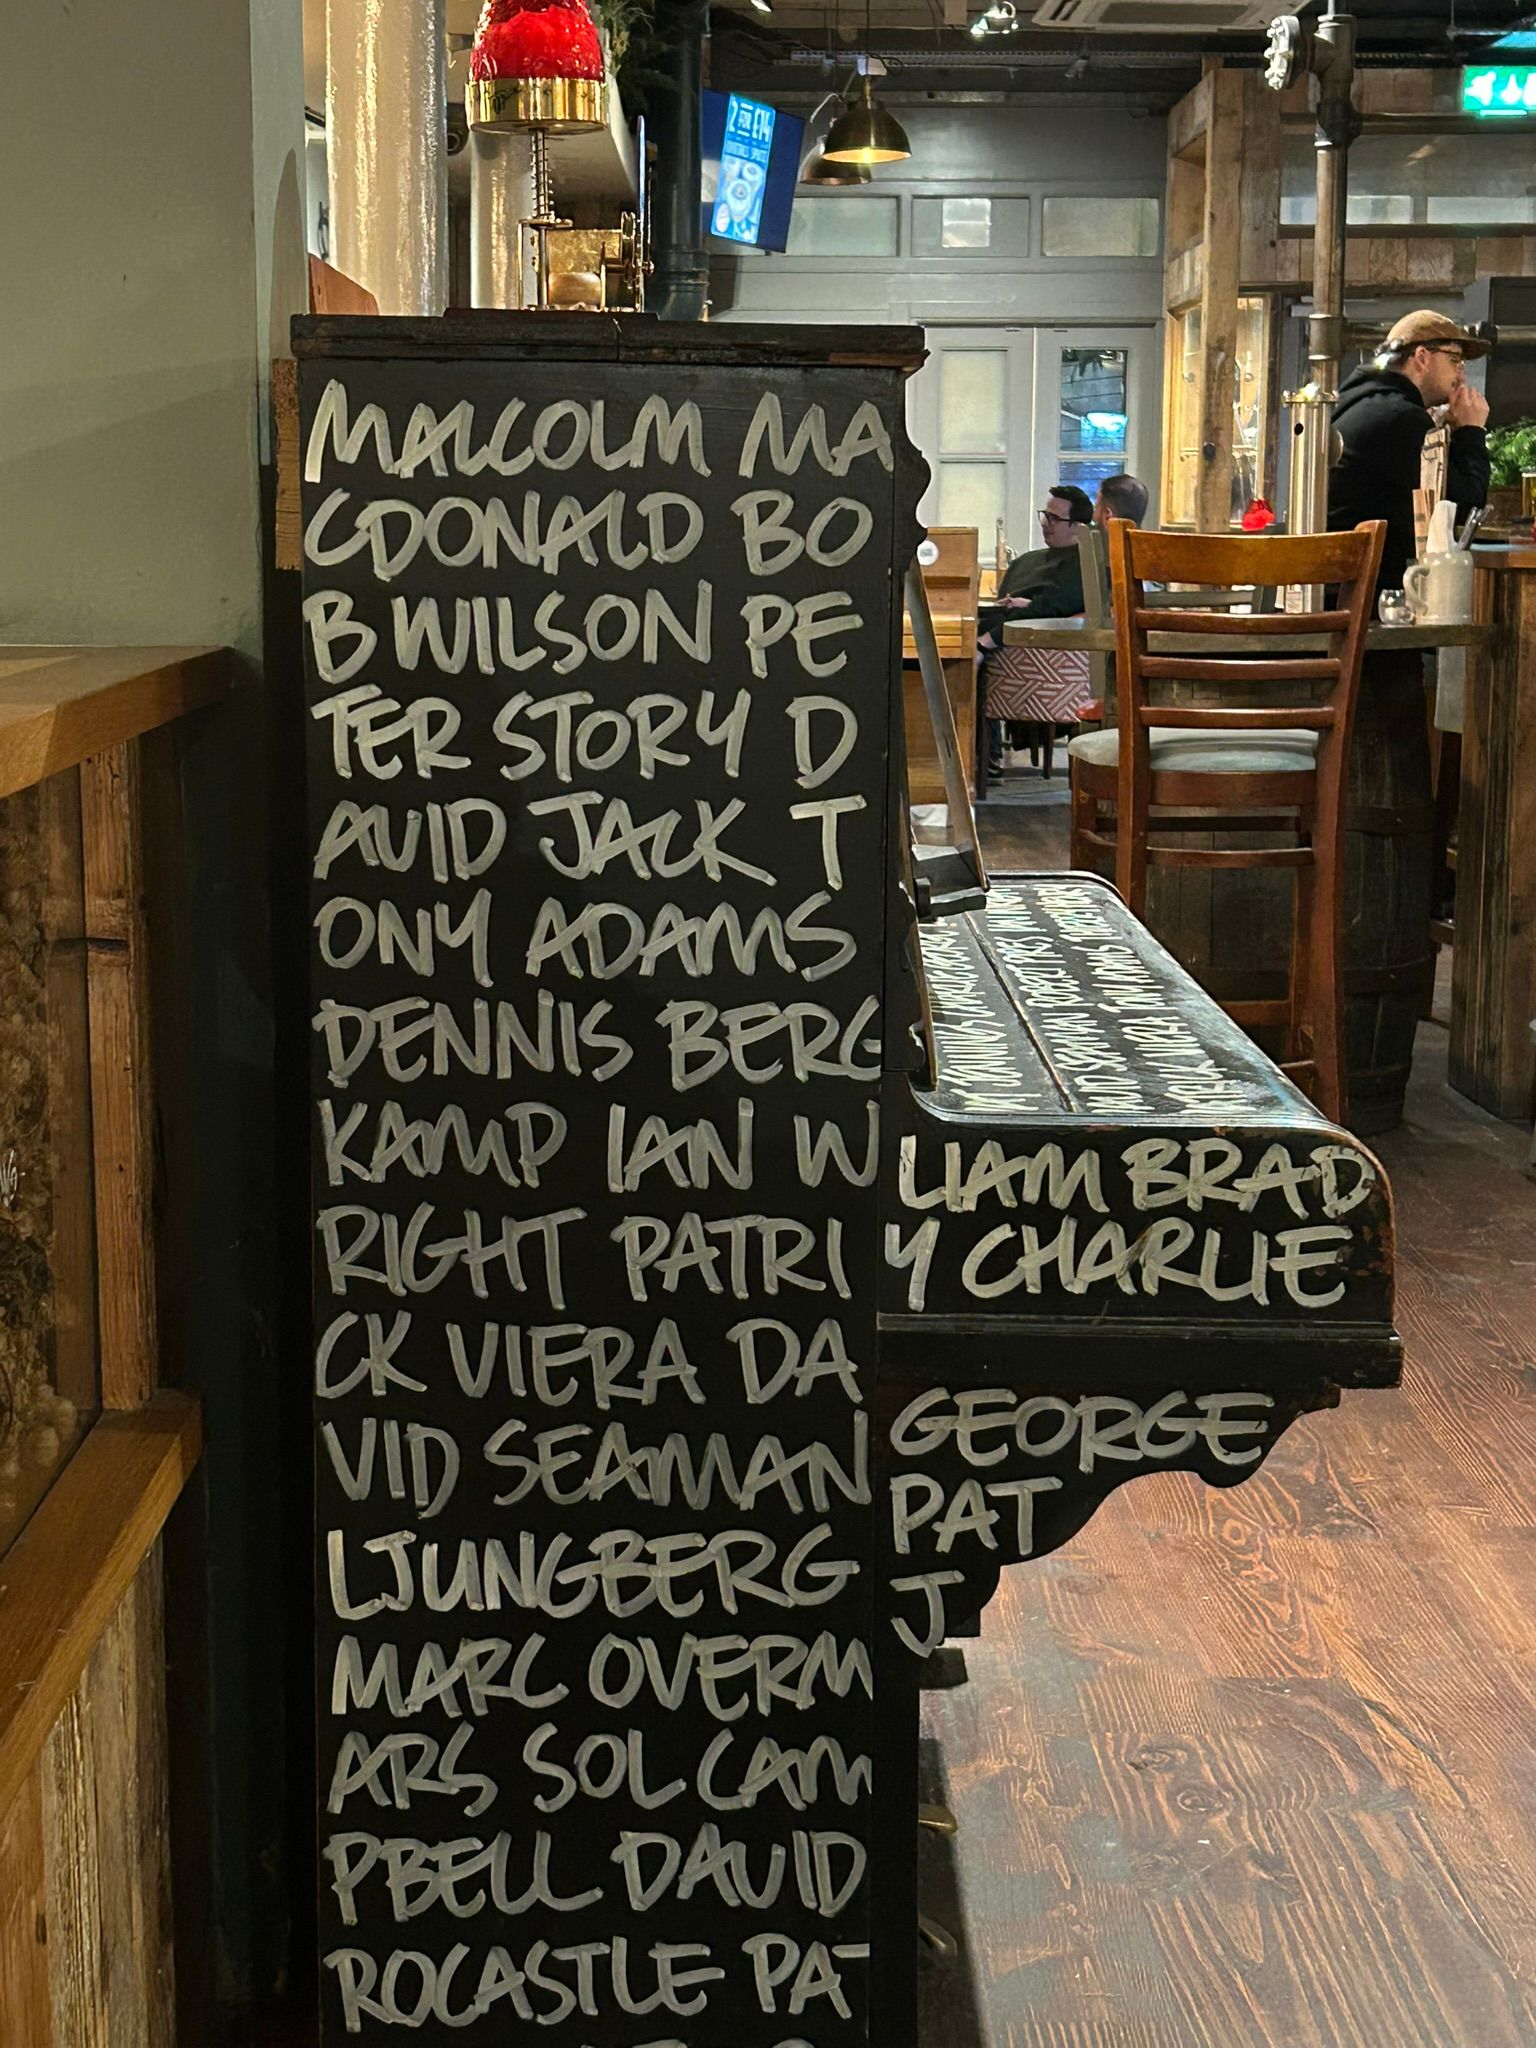 2 FOR £14
MALCOLM MA
CDONALD BO
B WILSON PE
TER STORY D
AVID JACK T
ONY ADAMS
DENNIS BERG
KAMP IAN W
RIGHT PATRI
CK VIERA DA
VID SEAMAN
LJUNGBERG
MARC OVERM
ARS SOL CAM
PBELL DAVID
ROCASTLE PAT
LIAM BRAD
Y CHARLIE
GEORGE
PAT
J